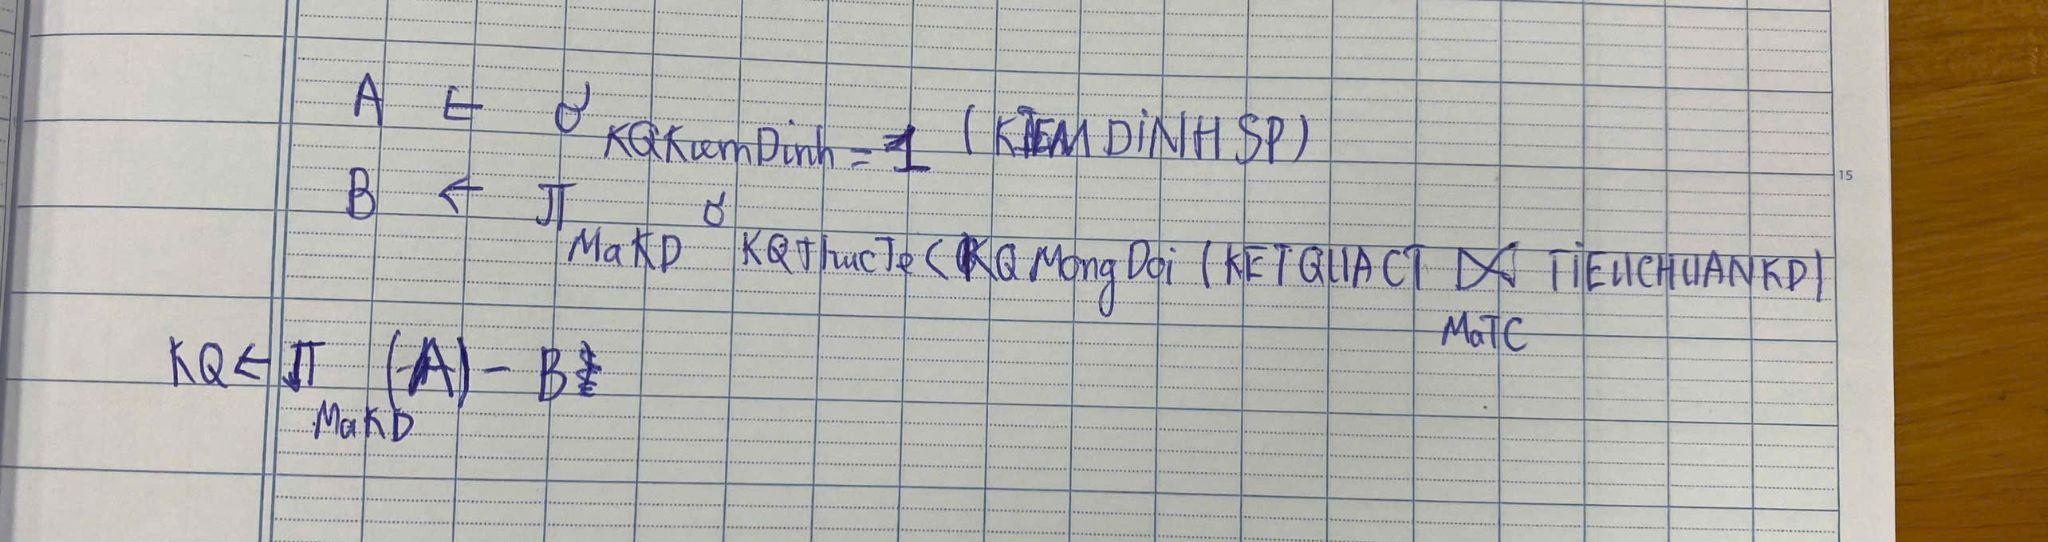 A ← σ KQKiemDinh = 1 (KIEMDINHSP)
15
B ← π MaKD σ KQthucTe < KQMongDoi (KETQUACT ⋈ TIEUCHUANKD)
MaTC
KQ ← π (A) - B
MaKD